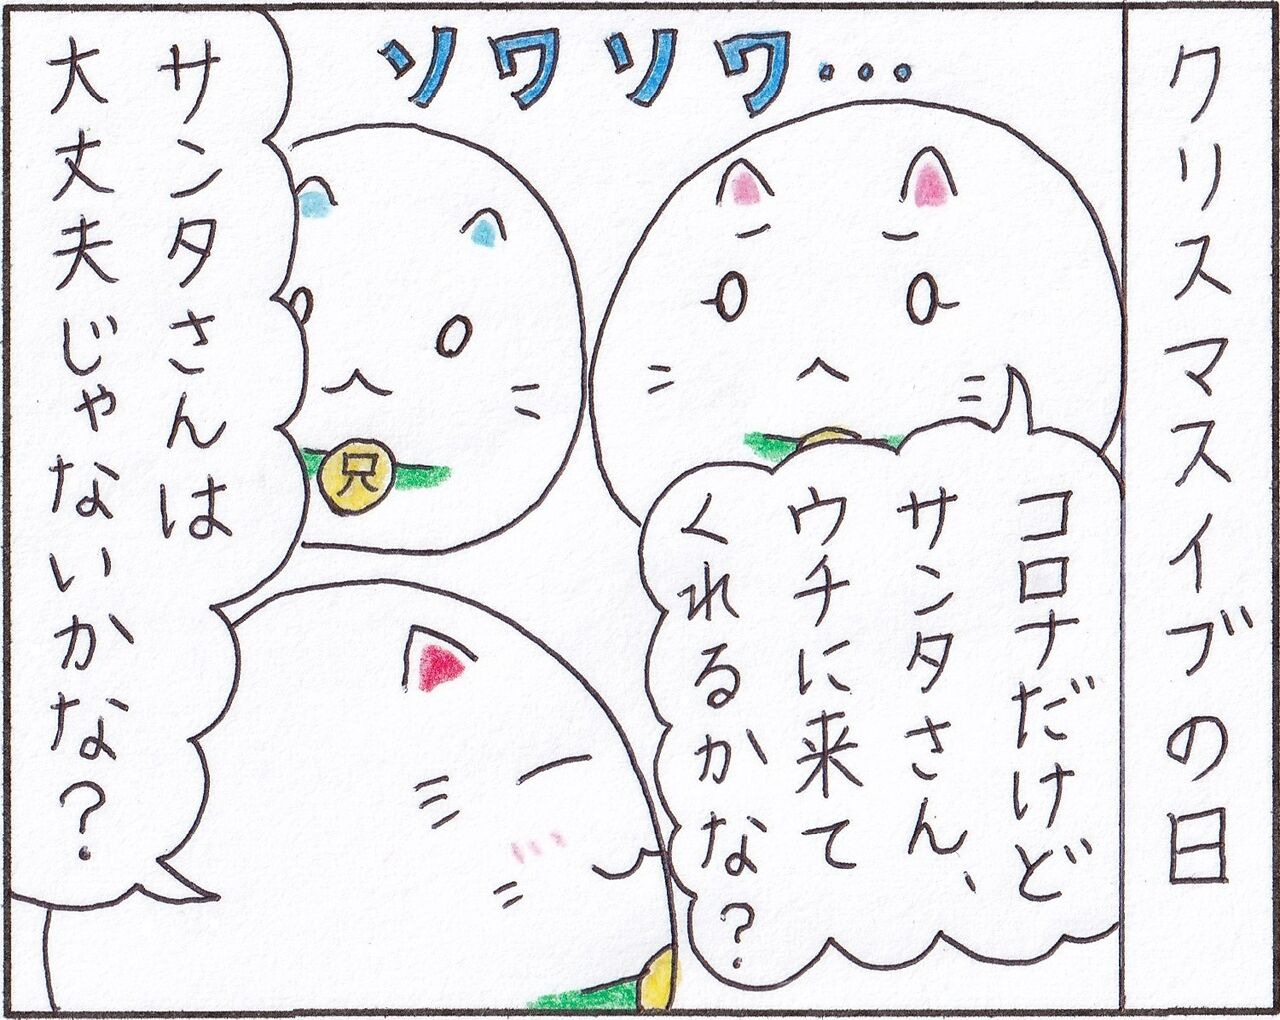 クリスマスイブの日
ソワソワ…
コロナだけど
サンタさん、
ウチに来て
くれるかな？
兄
サンタさんは
大丈夫じゃないかな？